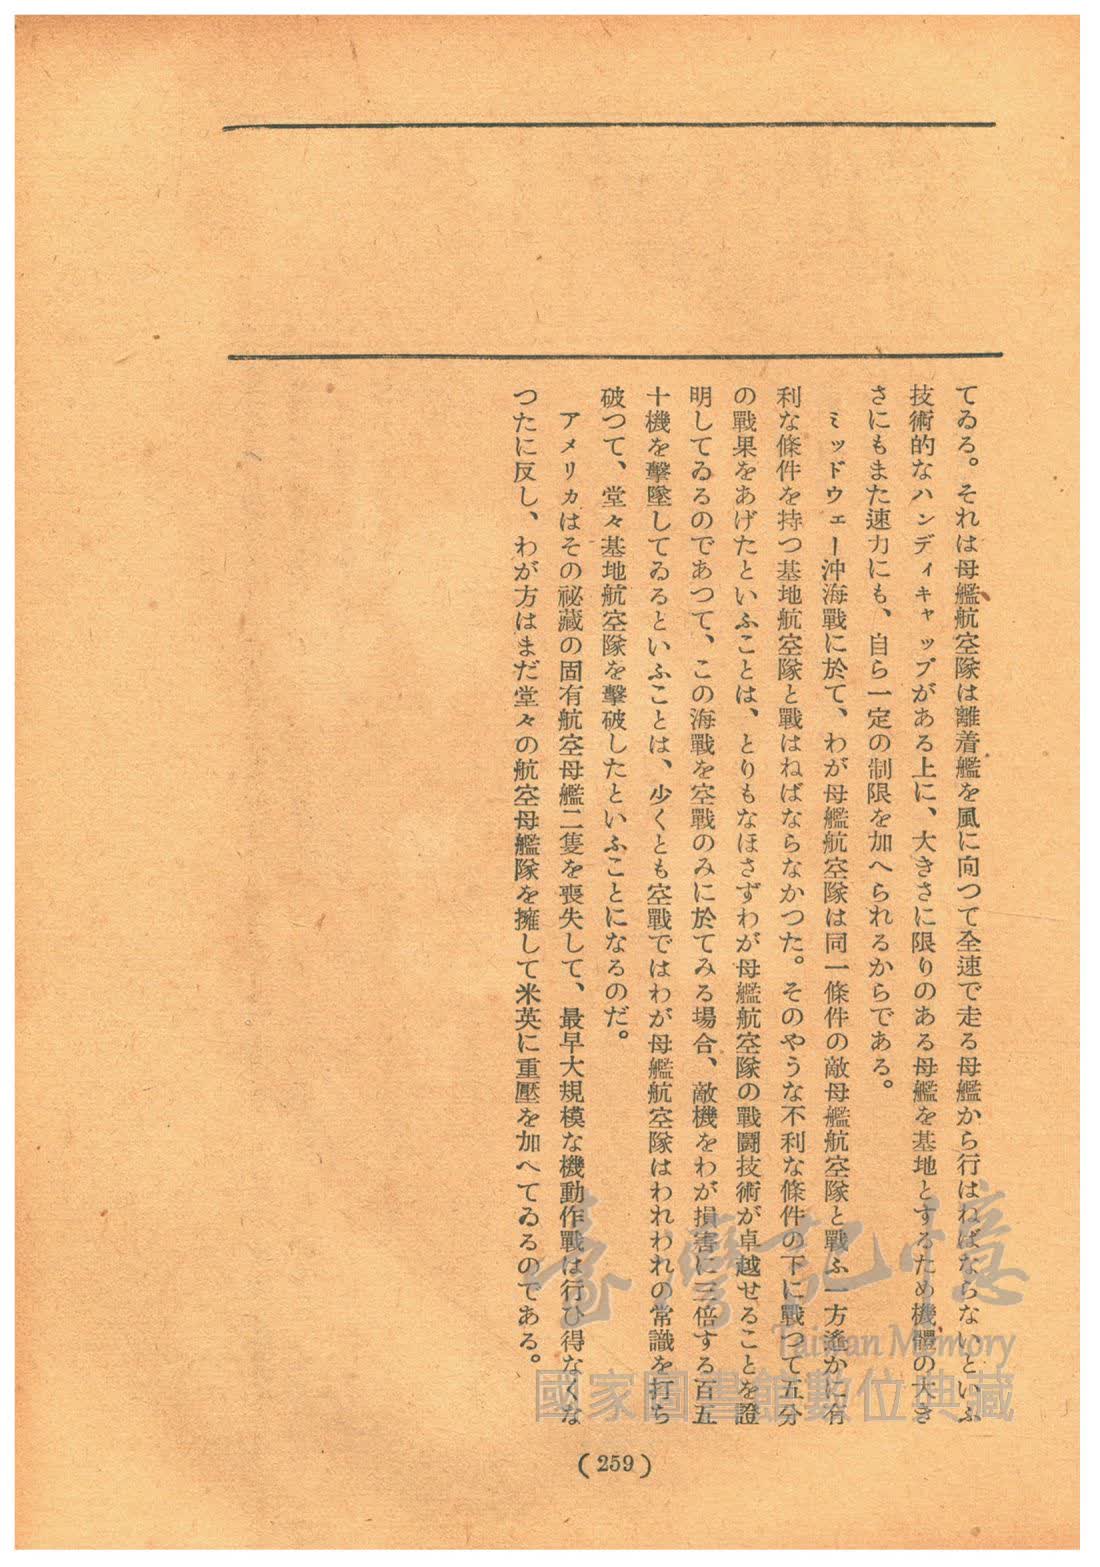 てゐる。それは母艦航空隊は離着艦を風に向つて全速で走る母艦から行はねばならないといふ
技術的なハンディキャップがある上に、大きさに限りのある母艦を基地とするため機體の大き
さにもまた速力にも、自ら一定の制限を加へられるからである。
ミッドウェー沖海戰に於て、わが母艦航空隊は同一條件の敵母艦航空隊と戰ふ一方遙かに有
利な條件を持つ基地航空隊と戰はねばならなかつた。そのやうな不利な條件の下に戰つて五分
の戰果をあげたといふことは、とりもなほさずわが母艦航空隊の戰鬪技術が卓越せることを證
明してゐるのであつて、この海戰を空戰のみに於てみる場合、敵機をわが損害に三倍する百五
十機を擊墜してゐるといふことは、少くとも空戰ではわが母艦航空隊はわれわれの常識を打ち
破つて、堂々基地航空隊を擊破したといふことになるのだ。
アメリカはその祕藏の固有航空母艦二隻を喪失して、最早大規模な機動作戰は行ひ得なくな
つたに反し、わが方はまだ堂々の航空母艦隊を擁して米英に重壓を加へてゐるのである。
(259)
臺灣記憶
Taiwan Memory
國家圖書館數位典藏